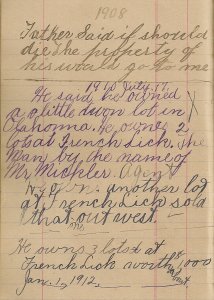 1908
Father Said if should
die the property of
his would go to me
1910 July 17.
He said he owned
a little town lot in
Oklahoma. He owns 2
lots at French Lick. The
Man by the name of
Mr Michler. Agent
another lot
at French Lick sold
that out west.
one
He owns 3 lots at
French Lick worth 1000
Jan. 1, 1912.